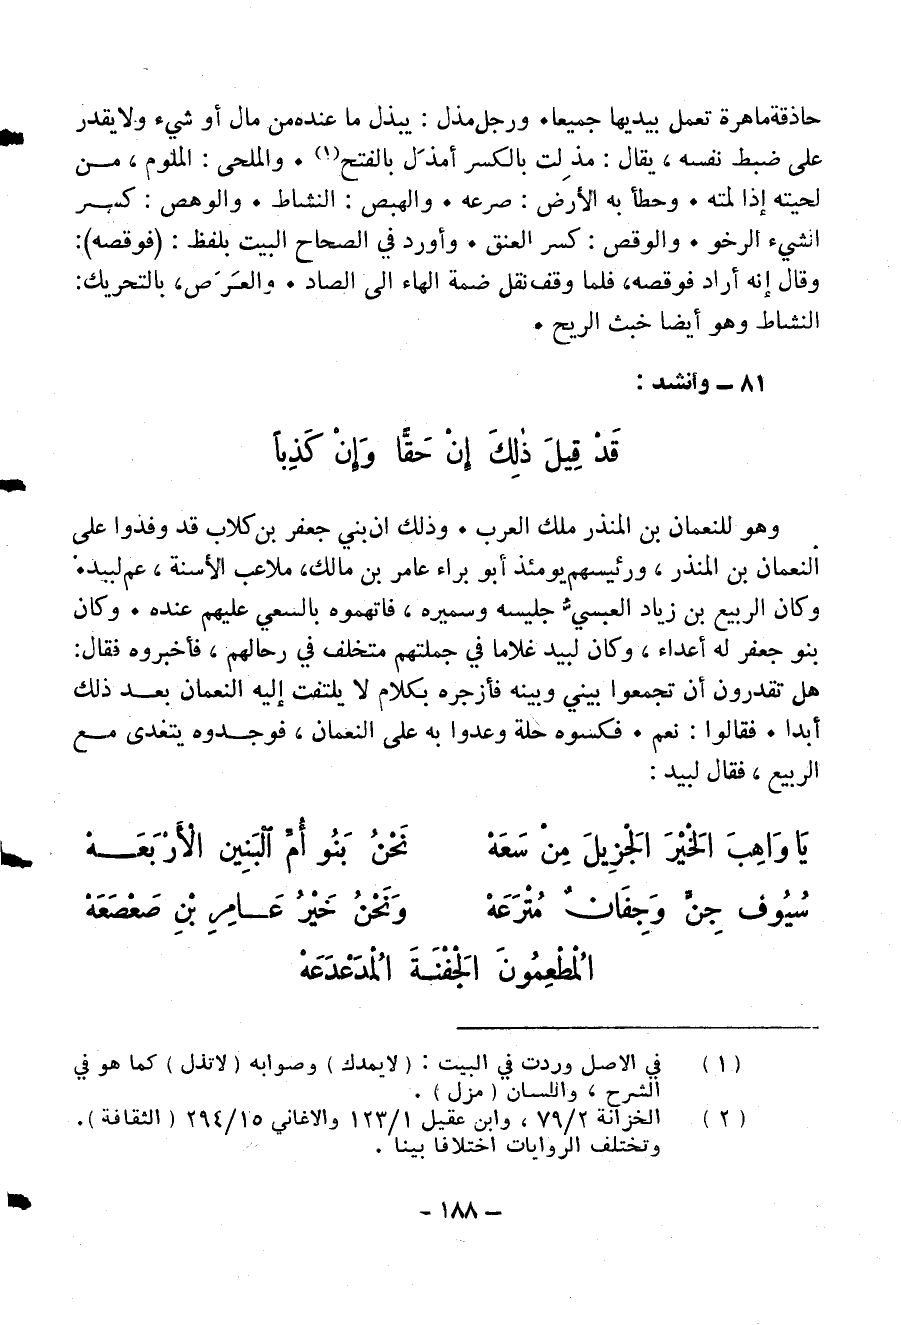 حاذقة ماهرة تعمل بيديها جميعا. ورجل مذل : يبذل ما عنده من مال أو شيء ولا يقدر
على ضبط نفسه ، يقال : مذِلت بالكسر أمذَل بالفتح(١) . والملحى : الملوم ، مــن
لحيته إذا لمته . وحطأ به الأرض : صرعه . والهبص : النشاط . والوهص : كســر
الشيء الرخو . والوقص : كسر العنق . وأورد في الصحاح البيت بلفظ : (فوقصه):
وقال إنه أراد فوقصه، فلما وقف نقل ضمة الهاء الى الصاد . والعَرَص، بالتحريك:
النشاط وهو أيضا خبث الريح .
٨١ – وأنشد :
قَدْ قِيلَ ذٰلِكَ إِنْ حَقًّا وَإِنْ كَذِباً
وهو للنعمان بن المنذر ملك العرب . وذلك ان بني جعفر بن كلاب قد وفدوا على
النعمان بن المنذر ، ورئيسهم يومئذ أبو براء عامر بن مالك، ملاعب الأسنة ، عم لبيد.
وكان الربيع بن زياد العبسي جليسه وسميره ، فاتهموه بالسعي عليهم عنده . وكان
بنو جعفر له أعداء ، وكان لبيد غلاما في جملتهم متخلف في رحالهم ، فأخبروه فقال:
هل تقدرون أن تجمعوا بيني وبينه فأزجره بكلام لا يلتفت إليه النعمان بعــد ذلك
أبدا . فقالوا : نعم . فكسوه حلة وغدوا به على النعمان ، فوجــدوه يتغدى مــع
الربيع ، فقال لبيد :
يَا وَاهِبَ الخَيْرَ الجَزِيلَ مِنْ سَعَهْ نَحْنُ بَنُو أُمِّ البَنِينِ الأَرْبَعَــهْ
سُيُوف جِنٍّ وَجِفَانٌ مُتْرَعَهْ وَنَحْنُ خَيْرُ عَــامِرِ بْنِ صَعْصَعَهْ
المُطْعِمُونَ الجَفْنَةَ المُدَعْدَعَهْ
(١) في الاصل وردت في البيت : (لايمدك) وصوابه (لاتذل) كما هو في
الشرح ، واللسان (مزل) .
(٢) الخزانة ٧٩/٢ ، وابن عقيل ١٢٣/١ والاغاني ٢٩٤/١٥ (الثقافة).
وتختلف الروايات اختلافا بينا .
– ١٨٨ –